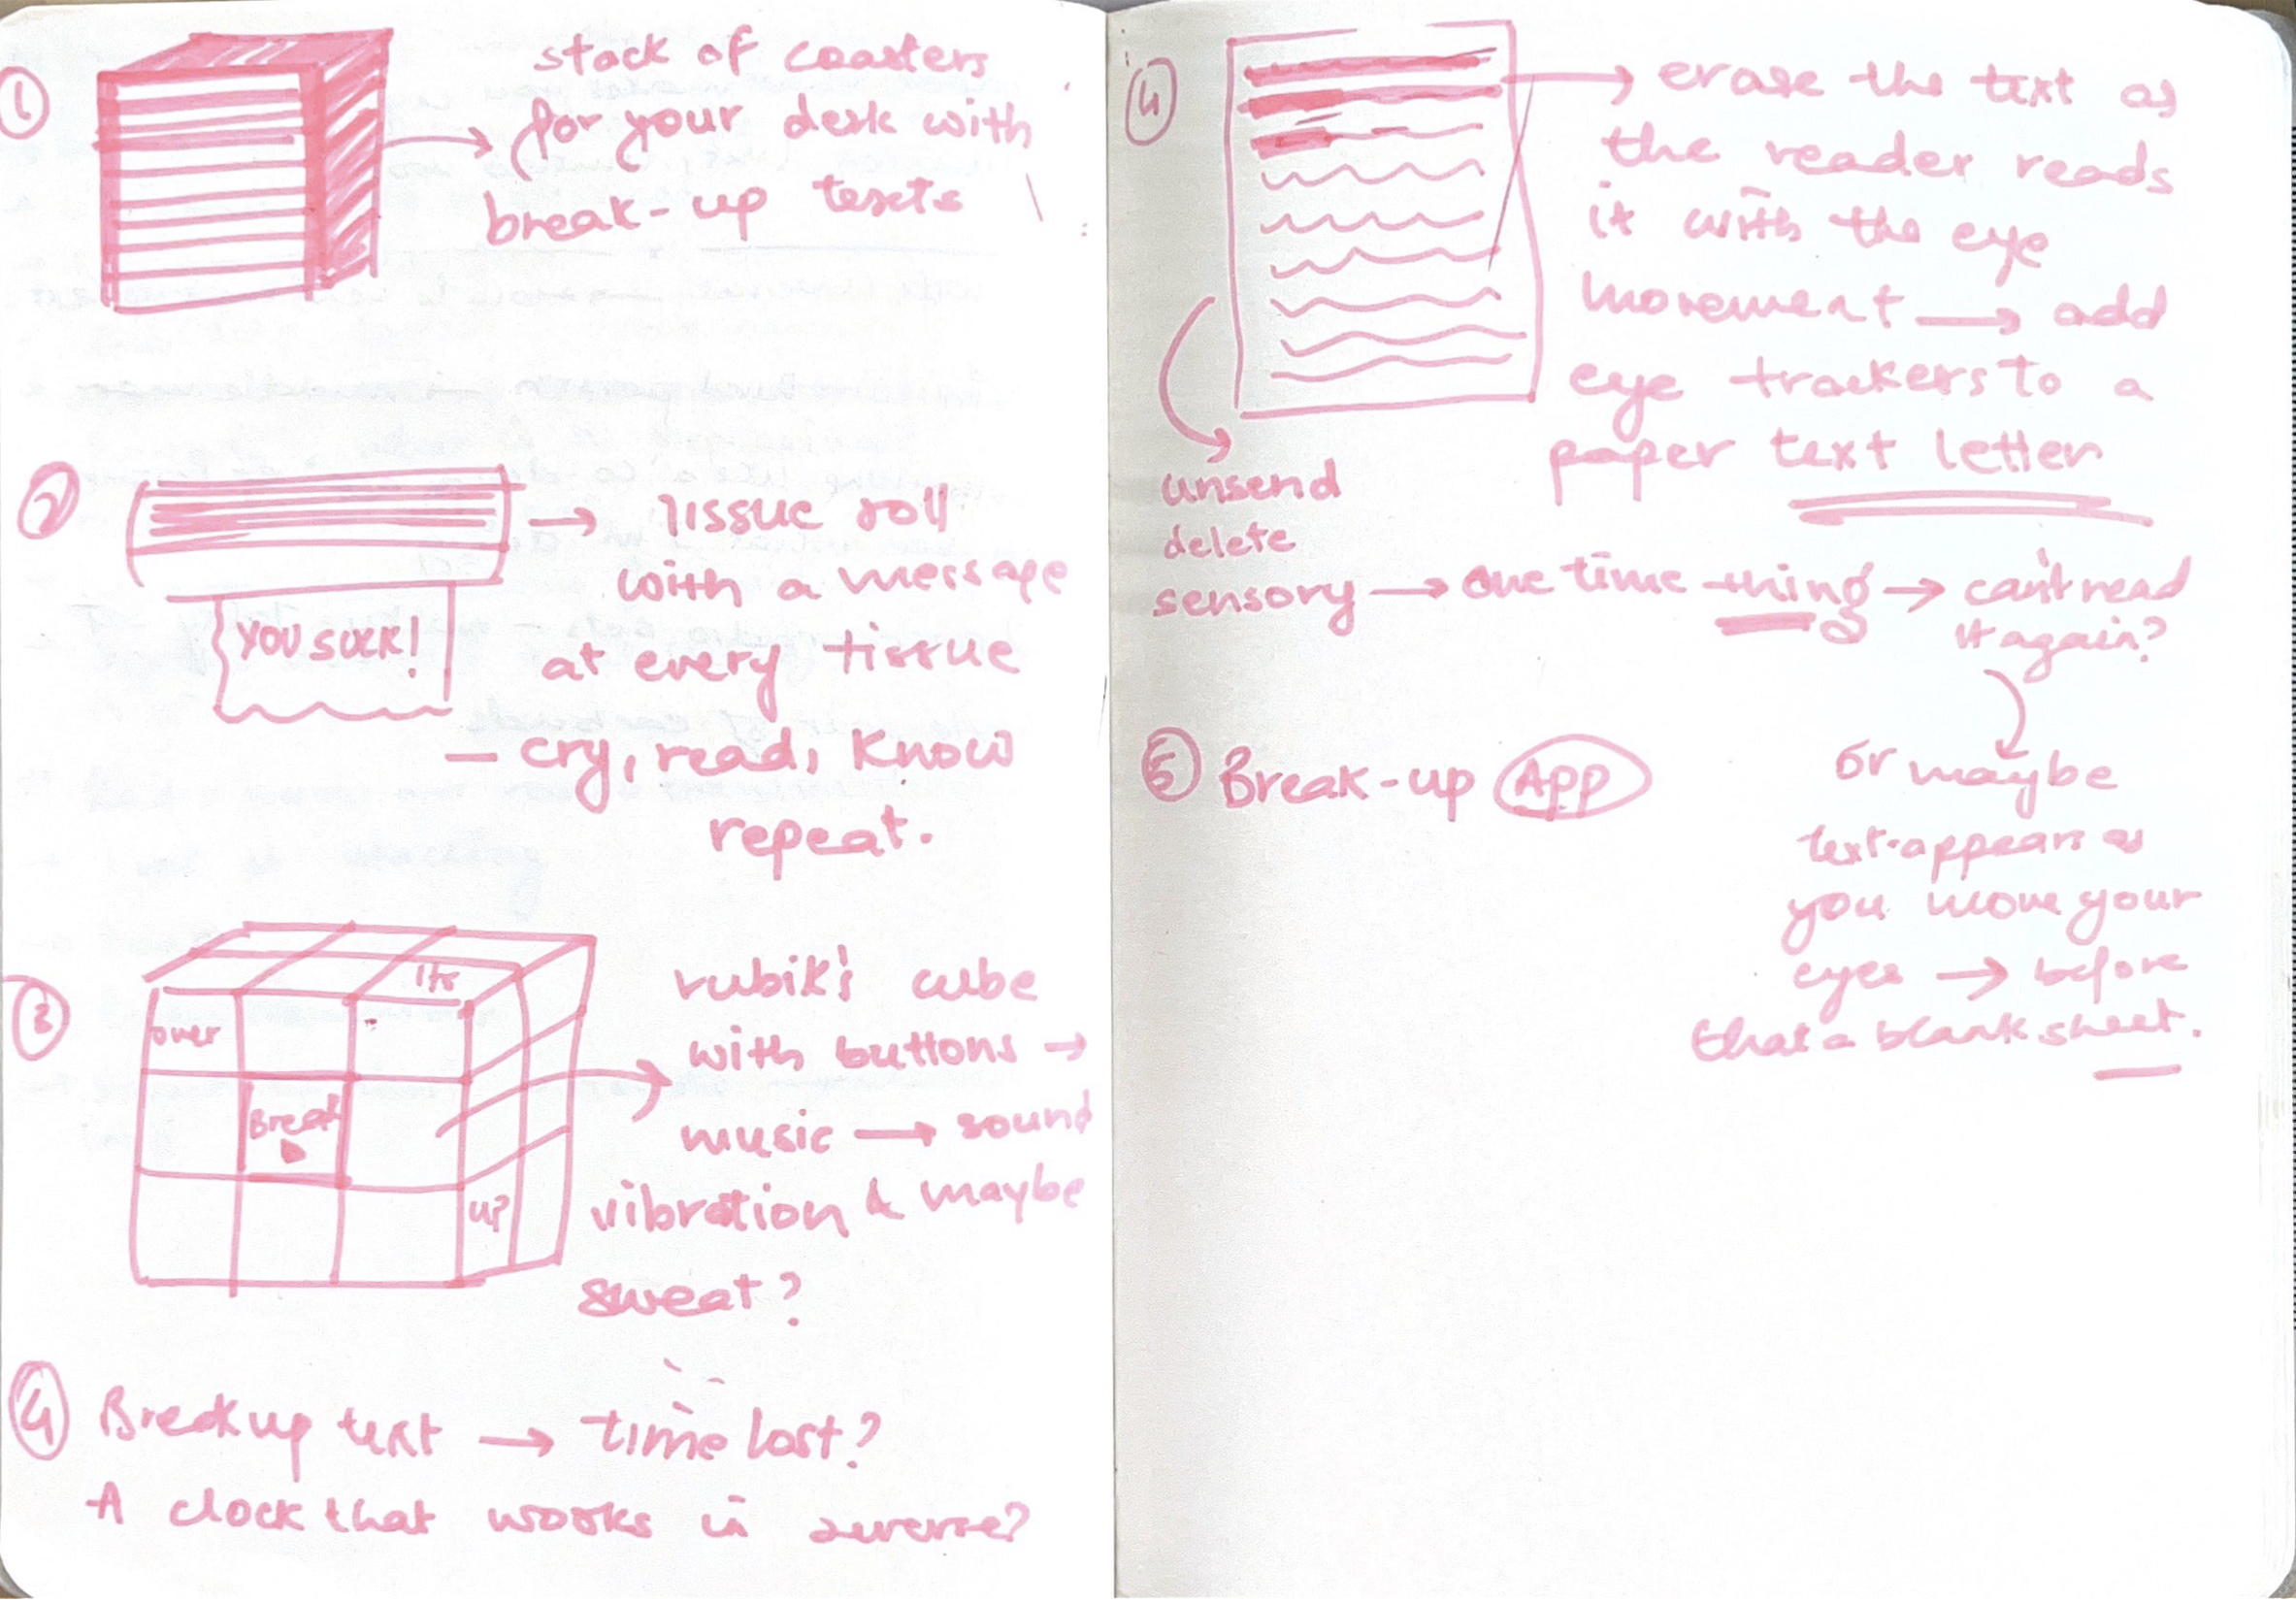 1
stack of coasters
for your desk with
break-up texts
2
YOU SUCK!
→ tissue roll
with a message
at every tissue
— cry, read, know
repeat.
3
Its
over
Break
up
rubik's cube
with buttons →
music → sound
vibration & maybe
sweat?
4 Breakup text → time lost?
A clock that works in reverse?
4
→ erase the text as
the reader reads
it with the eye
movement → add
eye trackers to a
paper text letter
unsend
delete
sensory → one time thing → can't read
it again?
or maybe
text appears as
you move your
eyes → before
that a blank sheet.
5 Break-up App